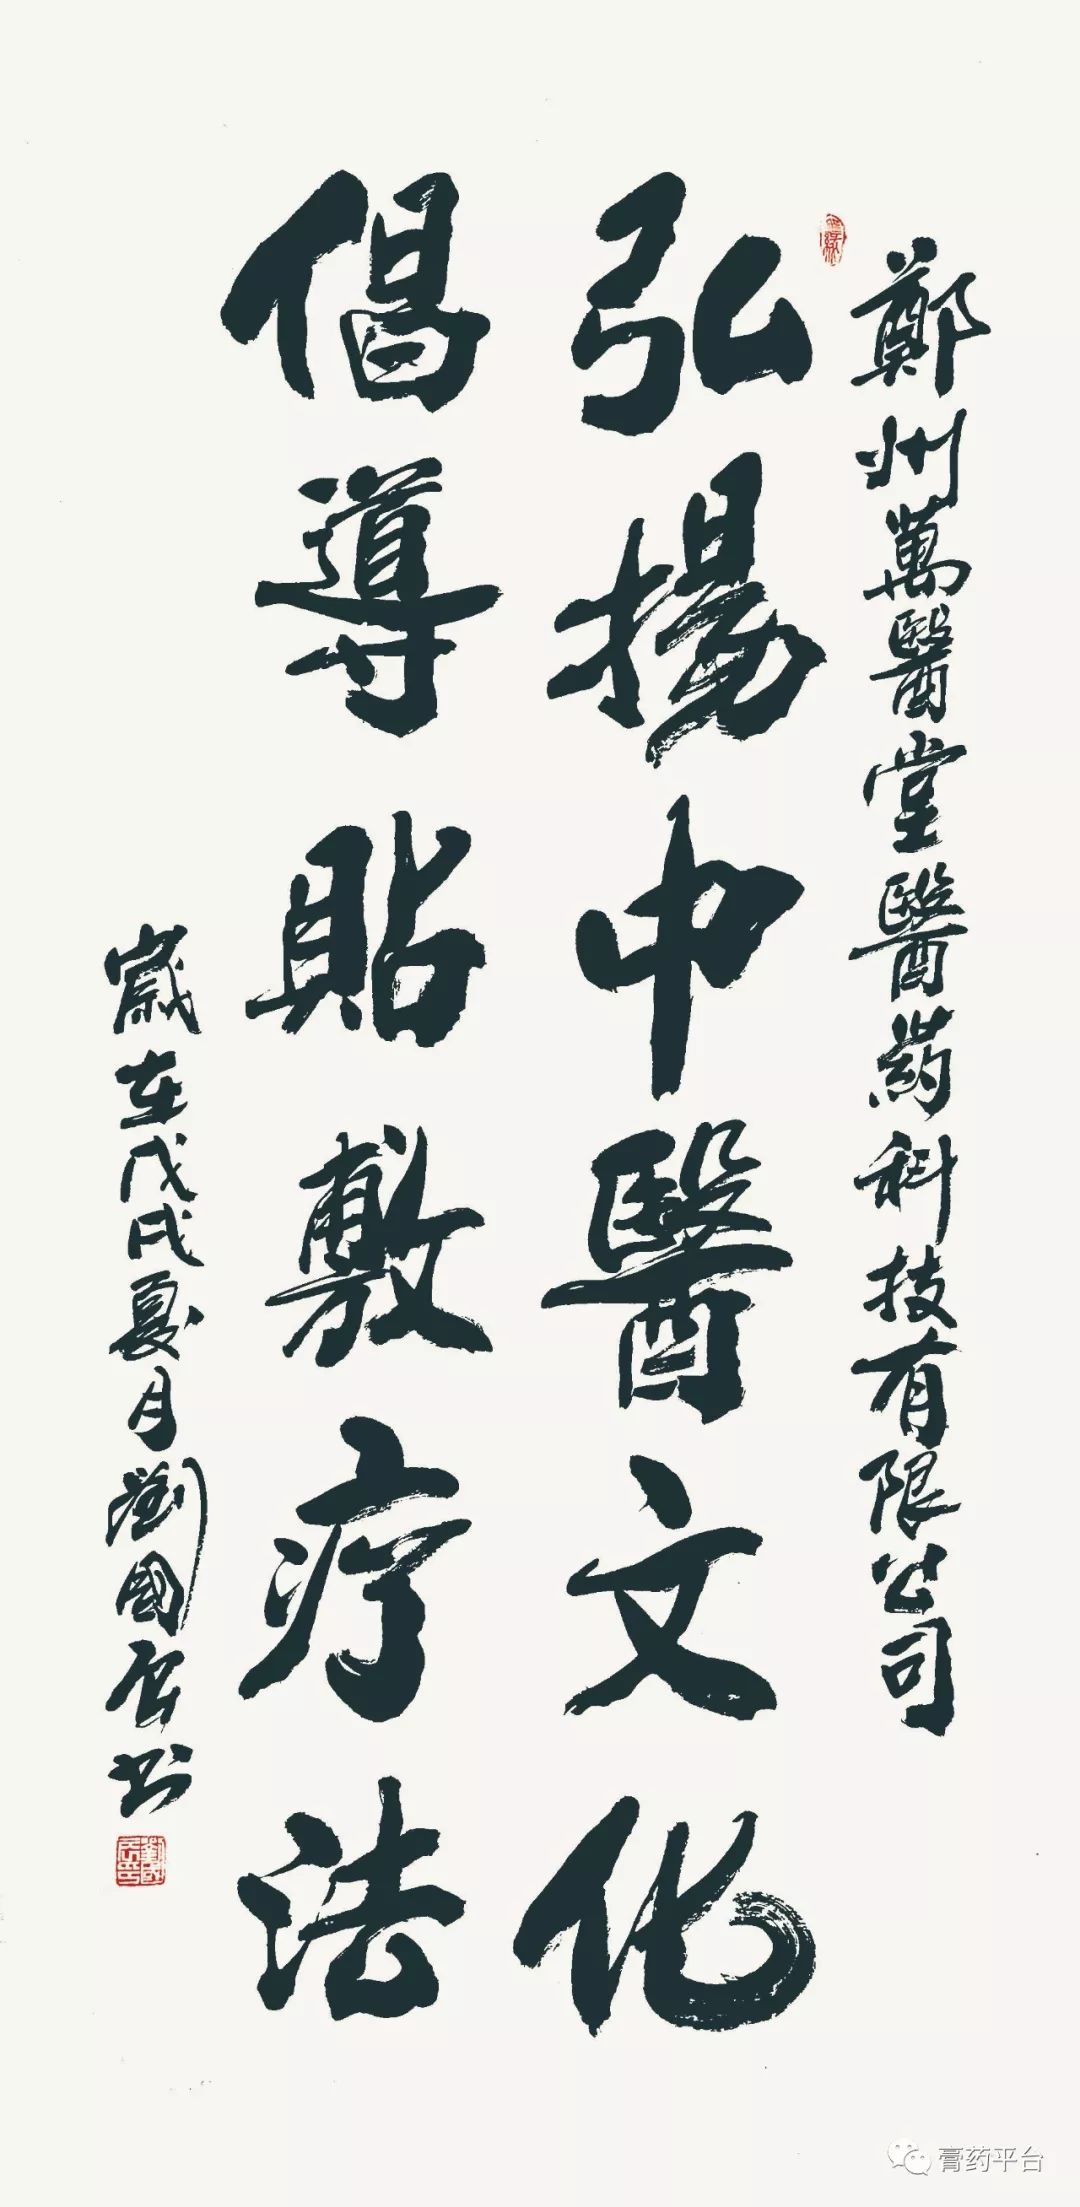 鄭州萬醫堂醫药科技有限公司
弘揚中醫文化
倡導貼敷疗法
歲在戊戌夏月劉國
膏药平台